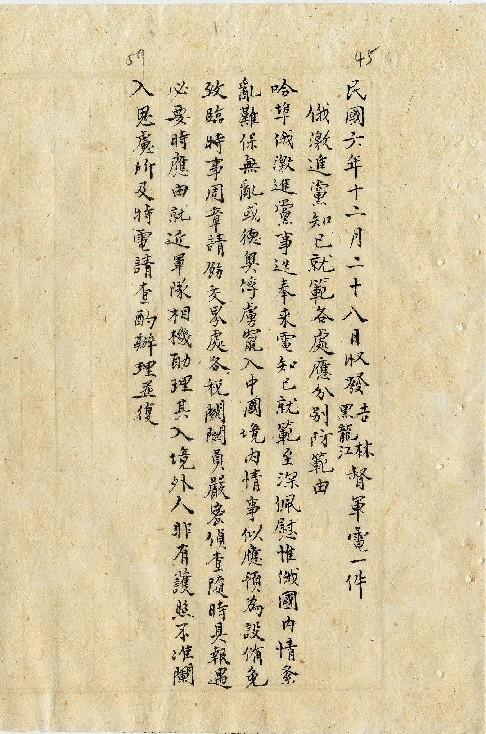 45
民國六年十二月二十八日收發吉林黑龍江督軍電一件
俄激進黨知已就範各處應分別防範由
哈埠俄激進黨事迭奉来電知已就範至深佩慰惟俄國内情紊
亂難保無亂或德奥俘虜竄入中國境内情事似應預為設備免
致臨時事周章請飭交界處各税關關員嚴密偵查隨時具報遇
必要時應由就近軍隊相機助理其入境外人非有護照不准闌
入思慮所及特電請查酌辦理並復
59